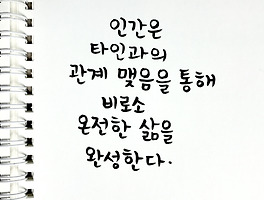 인간은
타인과의
관계 맺음을 통해
비로소
온전한 삶을
완성한다.